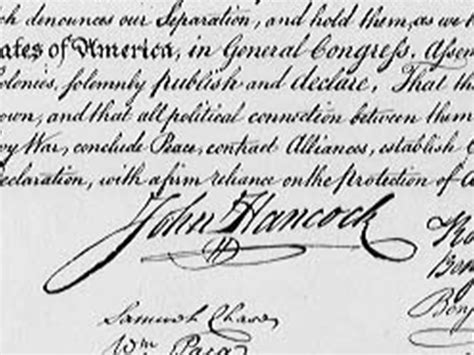 ch denounces our Separation, and hold them, as we h
tates of America, in General Congress, Assem
Colonies, solemnly publish and declare, That th
own, and that all political connection between them
vy War, conclude Peace, contract Alliances, establish C
eclaration, with a firm reliance on the protection of
John Hancock
Ro
Benj
Benj
Samuel Chase
Wm Paca